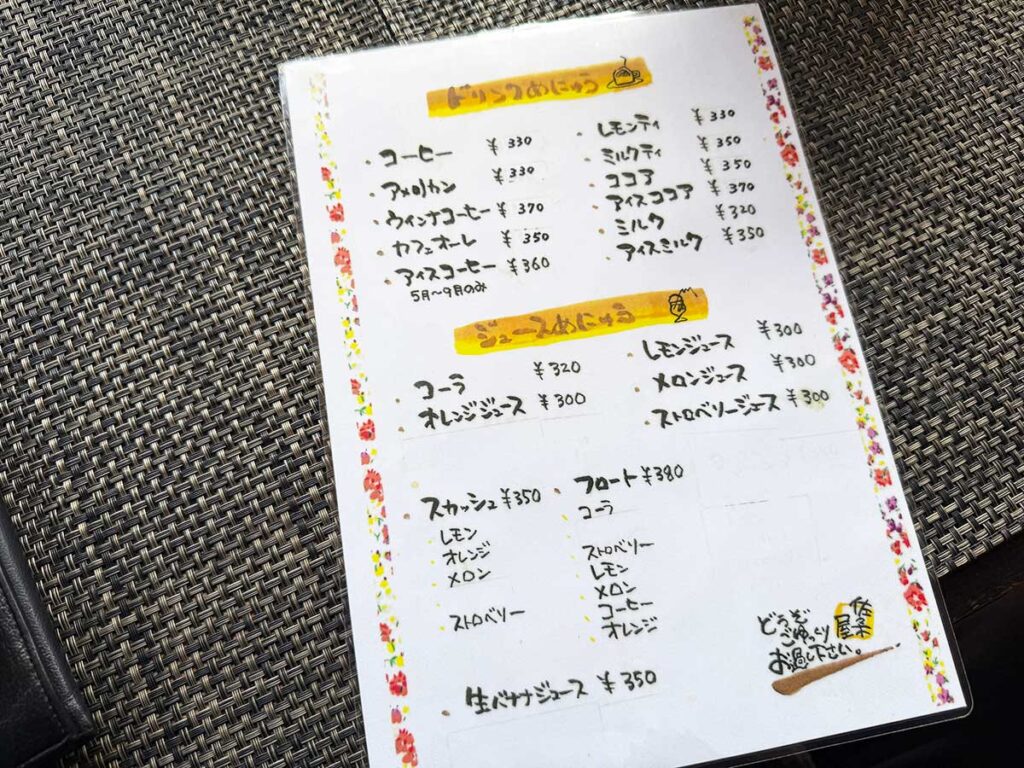 ドリンクめにゅう
・コーヒー ¥330
・アメリカン ¥330
・ウィンナコーヒー ¥370
・カフェオーレ ¥350
・アイスコーヒー ¥360
5月〜9月のみ
・レモンティ ¥330
・ミルクティ ¥350
・ココア ¥350
・アイスココア ¥370
・ミルク ¥320
・アイスミルク ¥350
ジュースめにゅう
・コーラ ¥320
・オレンジジュース ¥300
・レモンジュース ¥300
・メロンジュース ¥300
・ストロベリージュース ¥300
・スカッシュ ¥350
レモン
オレンジ
メロン
ストロベリー
・フロート ¥380
コーラ
ストロベリー
レモン
メロン
コーヒー
オレンジ
・生バナナジュース ¥350
どうぞ
ごゆっくり
お過し下さい。